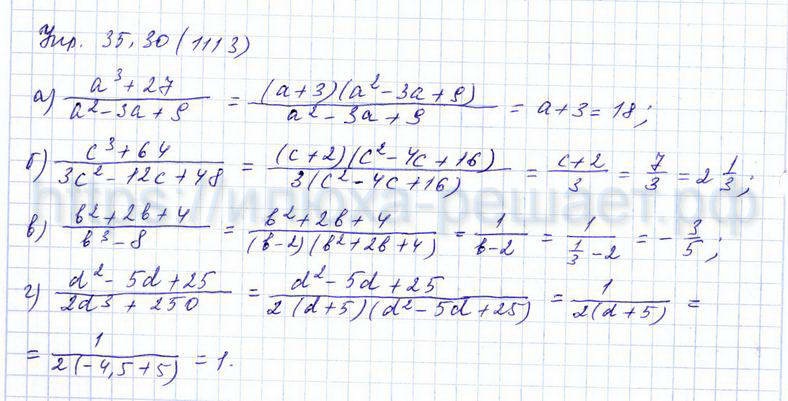 Упр. 35.30 (1113)
а) (a³ + 27)/(a² - 3a + 9) = ((a + 3)(a² - 3a + 9))/(a² - 3a + 9) = a + 3 = 18;
б) (c³ + 64)/(3c² - 12c + 48) = ((c + 2)(c² - 4c + 16))/(3(c² - 4c + 16)) = (c + 2)/3 = 7/3 = 2 1/3;
в) (b² + 2b + 4)/(b³ - 8) = (b² + 2b + 4)/((b - 2)(b² + 2b + 4)) = 1/(b - 2) = 1/(1/3 - 2) = - 3/5;
г) (d² - 5d + 25)/(2d³ + 250) = (d² - 5d + 25)/(2(d + 5)(d² - 5d + 25)) = 1/(2(d + 5)) =
= 1/(2(-4,5 + 5)) = 1.
https://илюха-решает.рф